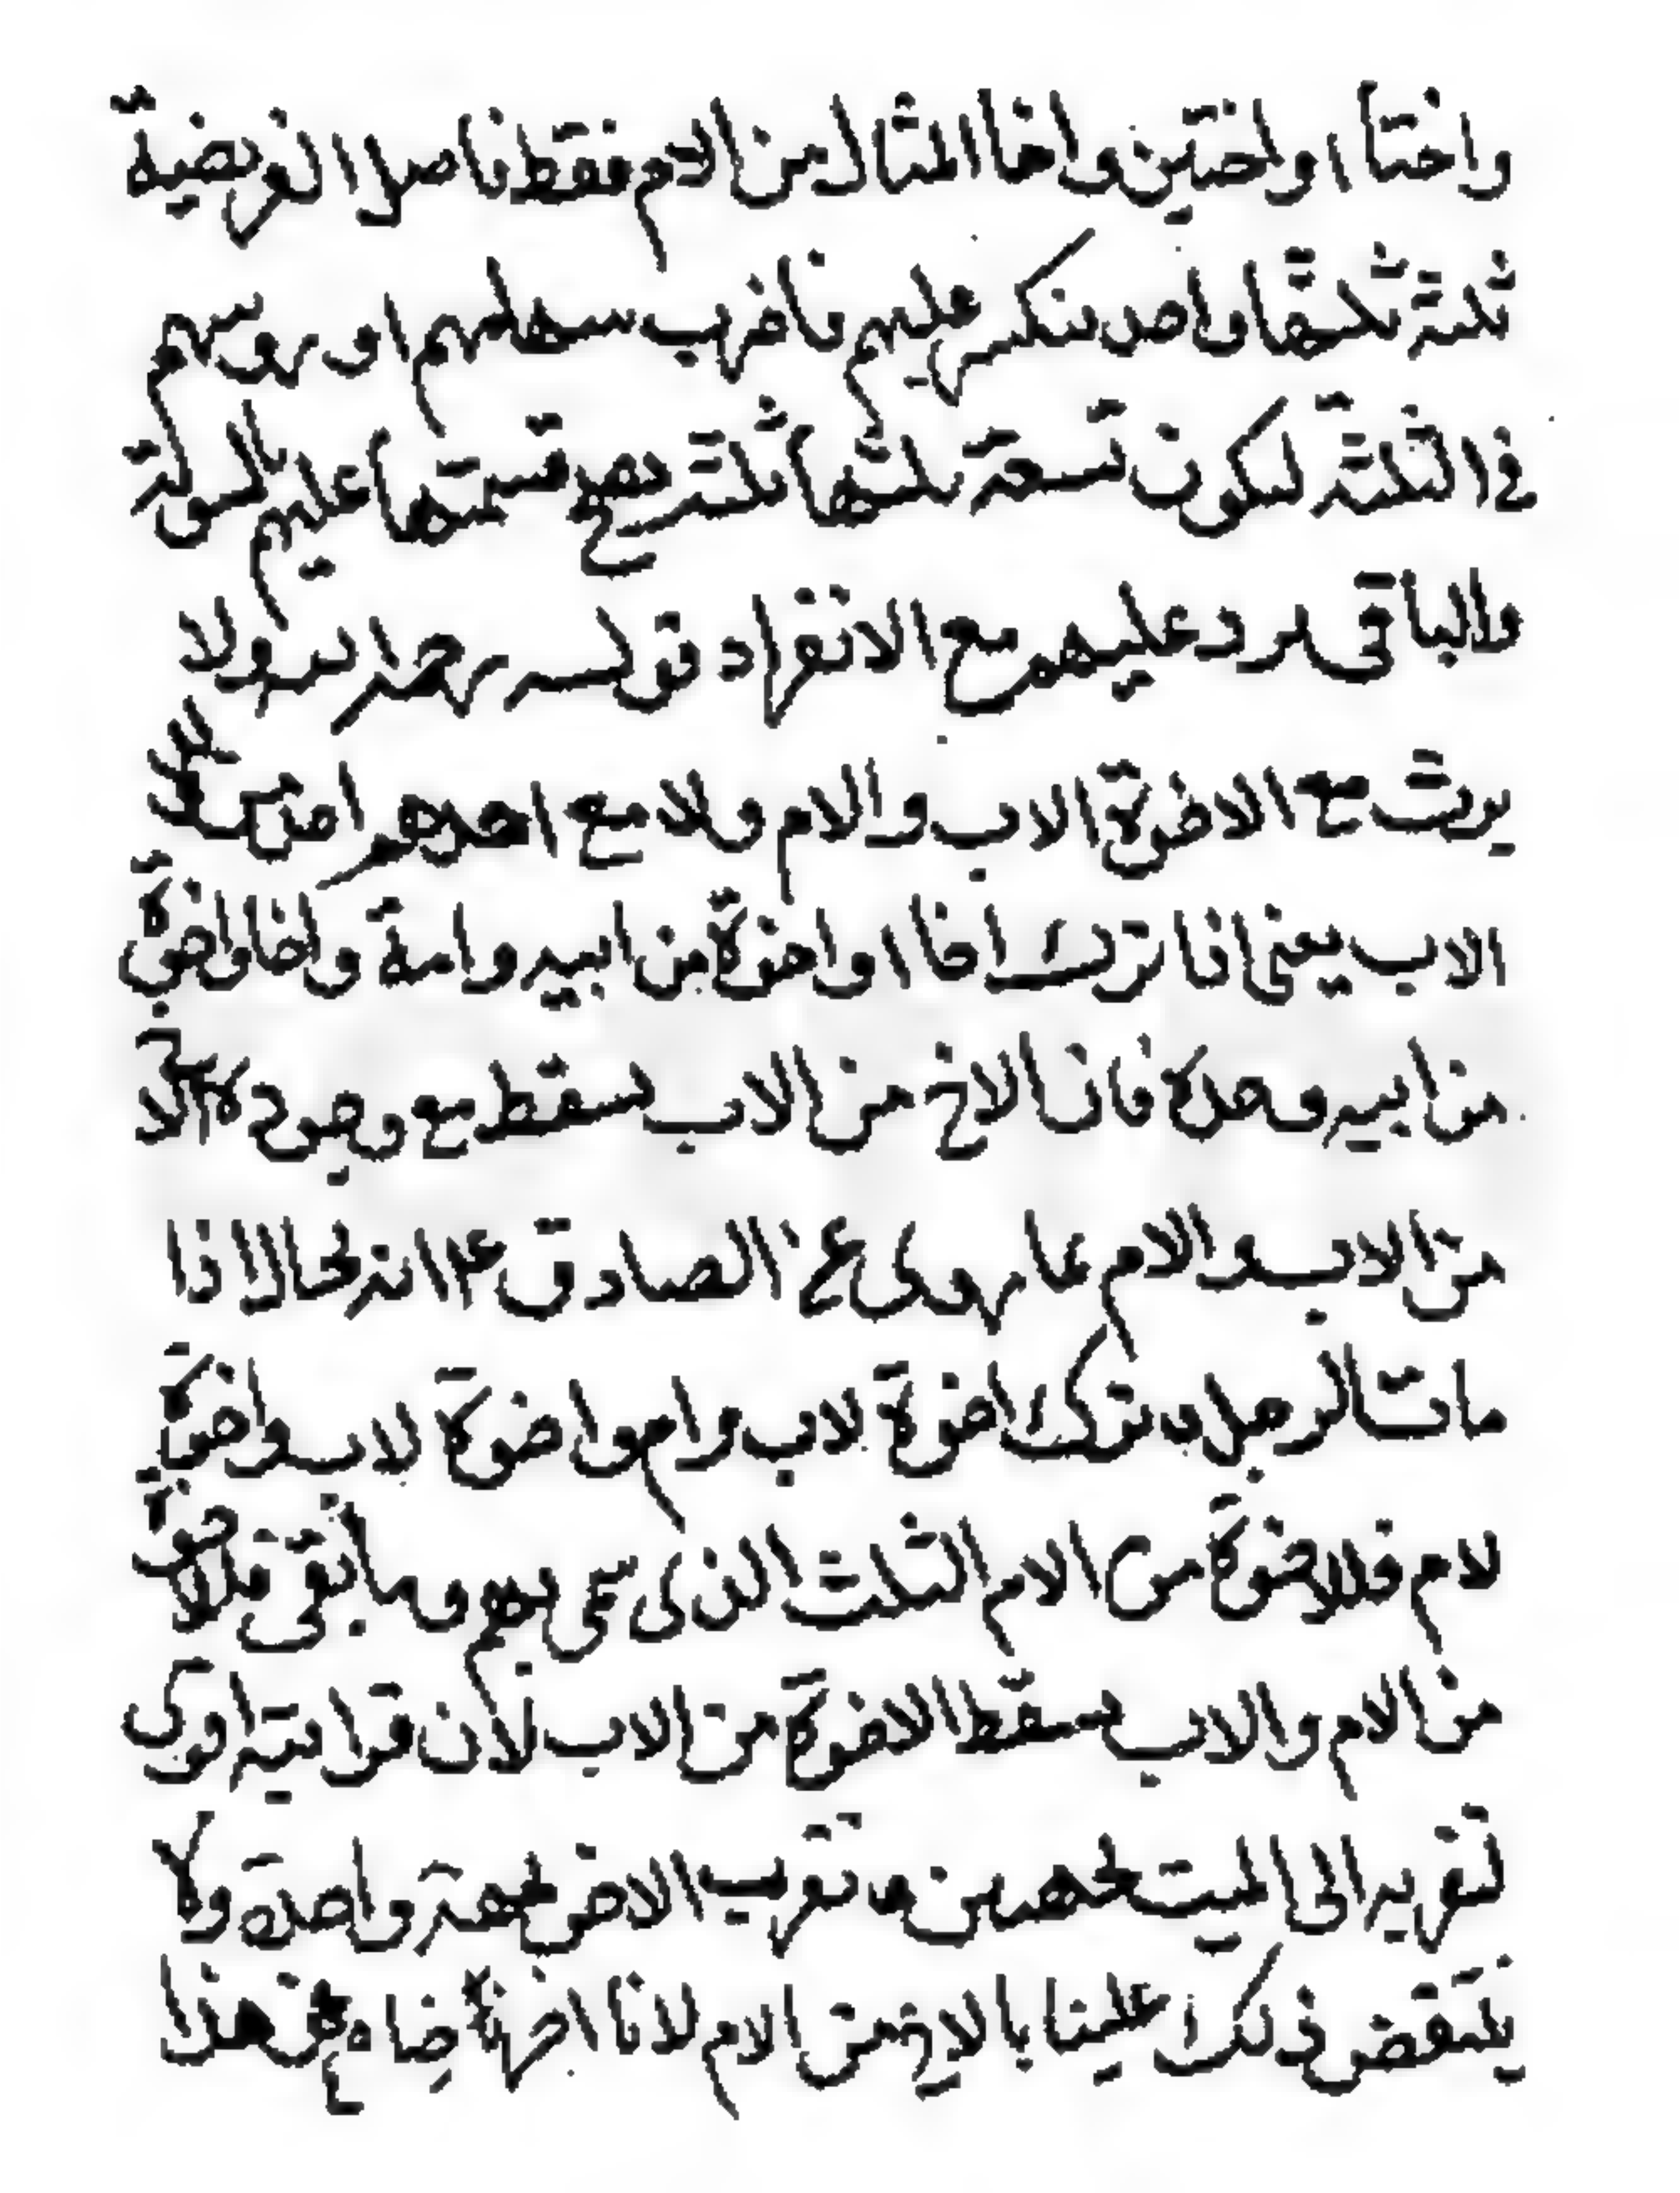 واختا او اختين واخا المثال من الام فقط فاصل الفريضية
ثلثة ثلثها واحد ينكسر عليهم فاضرب سهامهم او روسهم
في الثلثة ليكون تسعة ثلثها ثلثة يصح قسمتها عليهم بالسوية
والباقى لرد عليهم مع الانفراد قولـه رحمه الله ولا
يرث مع الاخوة الاب والام ولا مع احدهم احد من كلالة
الاب يعنى اذا ترك اخا او اخوة من ابيه وامة واخا واخوة
من ابيه وحده فان الاخ من الاب يسقط مع وجود الاخ
من الاب والام لما روى عن الصادق ع انه قال اذا
مات الرجل وترك اخوة لاب وام واخوة لاب واخوة
لام فللاخوة من الام الثلث الذى سمى لهم وما بقى فللاخوة
من الام والاب يسقط الاخوة من الاب لان قرابته اقوى
لتقربه الى الميت بجهتين وتقرب الاخ بجهة واحدة ولا
ينتقض ذلك علينا بالاخ من الام لانا اخرناه خاص عن هذا